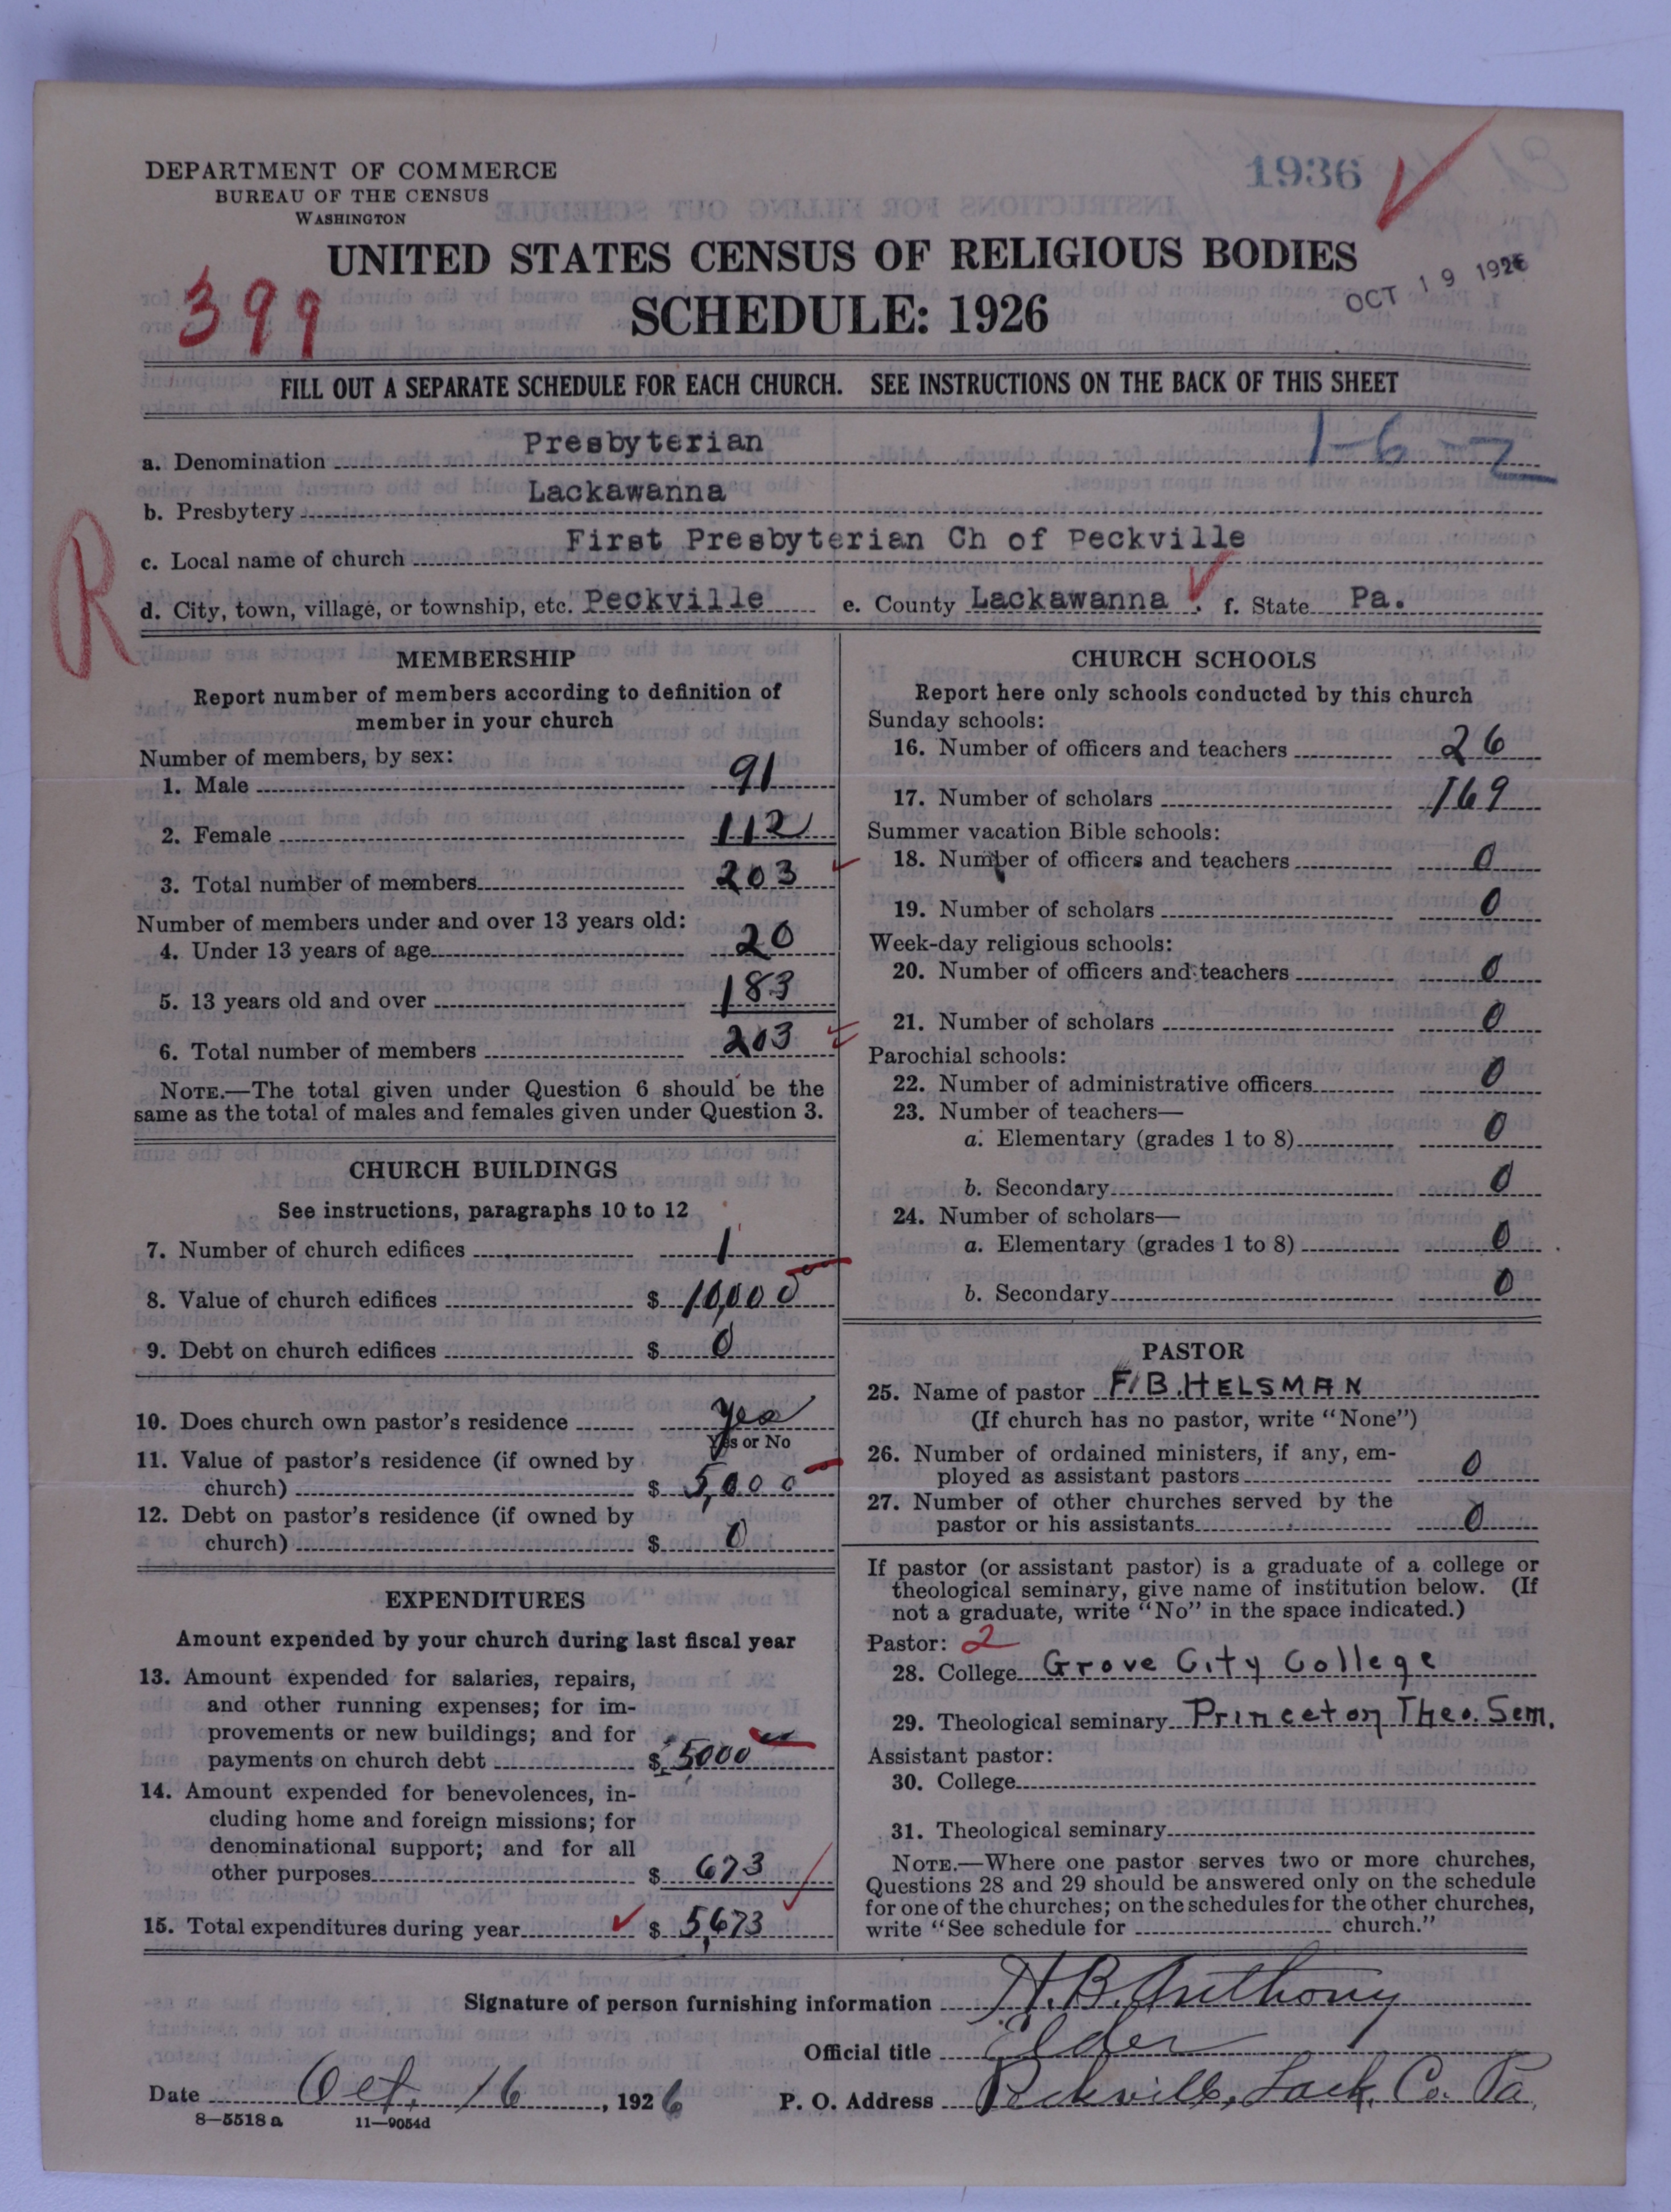 DEPARTMENT OF COMMERCE
BUREAU OF THE CENSUS
WASHINGTON
1936
UNITED STATES CENSUS OF RELIGIOUS BODIES
SCHEDULE: 1926
OCT 19 1926
399
FILL OUT A SEPARATE SCHEDULE FOR EACH CHURCH. SEE INSTRUCTIONS ON THE BACK OF THIS SHEET
1-6-2
a. Denomination Presbyterian
b. Presbytery Lackawanna
c. Local name of church First Presbyterian Ch of Peckville
R
d. City, town, village, or township, etc. Peckville e. County Lackawanna f. State Pa.
MEMBERSHIP
Report number of members according to definition of
member in your church
Number of members, by sex:
1. Male 91
2. Female 112
3. Total number of members 203
Number of members under and over 13 years old:
4. Under 13 years of age 20
5. 13 years old and over 183
6. Total number of members 203
NOTE.—The total given under Question 6 should be the
same as the total of males and females given under Question 3.
CHURCH BUILDINGS
See instructions, paragraphs 10 to 12
7. Number of church edifices 1
8. Value of church edifices $ 10,000
9. Debt on church edifices $ 0
10. Does church own pastor's residence yes
Yes or No
11. Value of pastor's residence (if owned by
church) $ 5,000
12. Debt on pastor's residence (if owned by
church) $ 0
EXPENDITURES
Amount expended by your church during last fiscal year
13. Amount expended for salaries, repairs,
and other running expenses; for im-
provements or new buildings; and for
payments on church debt $ 5000
14. Amount expended for benevolences, in-
cluding home and foreign missions; for
denominational support; and for all
other purposes $ 673
15. Total expenditures during year $ 5,673
CHURCH SCHOOLS
Report here only schools conducted by this church
Sunday schools:
16. Number of officers and teachers 26
17. Number of scholars 169
Summer vacation Bible schools:
18. Number of officers and teachers 0
19. Number of scholars 0
Week-day religious schools:
20. Number of officers and teachers 0
21. Number of scholars 0
Parochial schools:
22. Number of administrative officers 0
23. Number of teachers—
a. Elementary (grades 1 to 8) 0
b. Secondary 0
24. Number of scholars—
a. Elementary (grades 1 to 8) 0
b. Secondary 0
PASTOR
25. Name of pastor F. B. HELSMAN
(If church has no pastor, write "None")
26. Number of ordained ministers, if any, em-
ployed as assistant pastors 0
27. Number of other churches served by the
pastor or his assistants 0
If pastor (or assistant pastor) is a graduate of a college or
theological seminary, give name of institution below. (If
not a graduate, write "No" in the space indicated.)
Pastor: 2
28. College Grove City College
29. Theological seminary Princeton Theo. Sem.
Assistant pastor:
30. College
31. Theological seminary
NOTE.—Where one pastor serves two or more churches,
Questions 28 and 29 should be answered only on the schedule
for one of the churches; on the schedules for the other churches,
write "See schedule for church."
Signature of person furnishing information H. B. Anthony
Official title Elder
Date Oct. 16, 1926 P. O. Address Peckville, Lack. Co. Pa.
8—5518 a 11—9054d